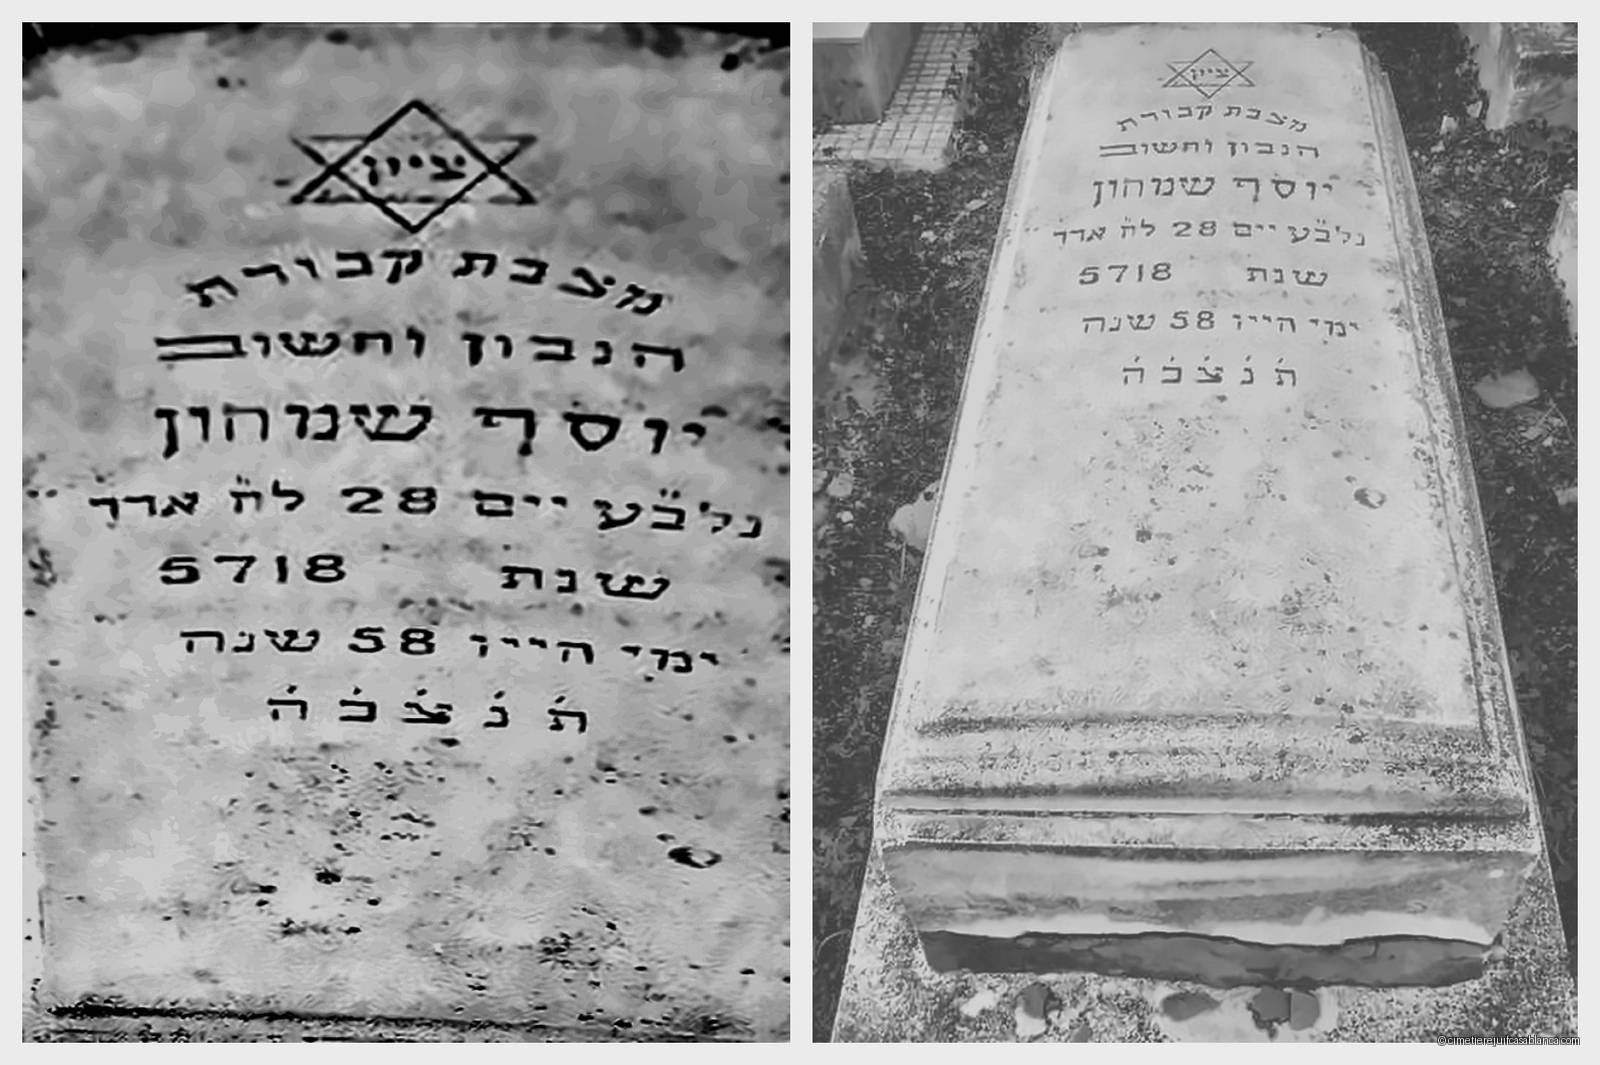 ציון
מצבת קבורת
הנבון וחשוב
יוסף שמחון
נלב̈ע יים 28 לח̈ אדר
שנת 5718
ימי הייו 58 שנה
ת̇ נ̇ צ̇ ב̇ ה̇
ציון
מצבת קבורת
הנבון וחשוב
יוסף שמחון
נלב̈ע יים 28 לח̈ אדר
שנת 5718
ימי הייו 58 שנה
ת̇ נ̇ צ̇ ב̇ ה̇
©cimetierejuifcasablanca.com